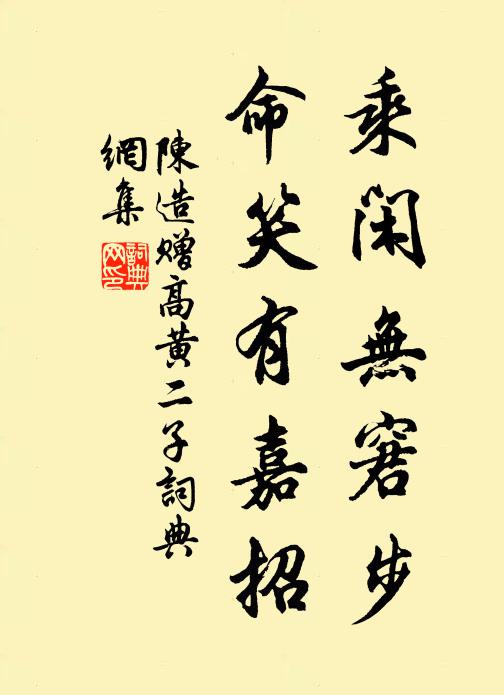 乘閑無窘步
命笑有嘉招
陳造贈高黃二子詞典
網集
詞典網印